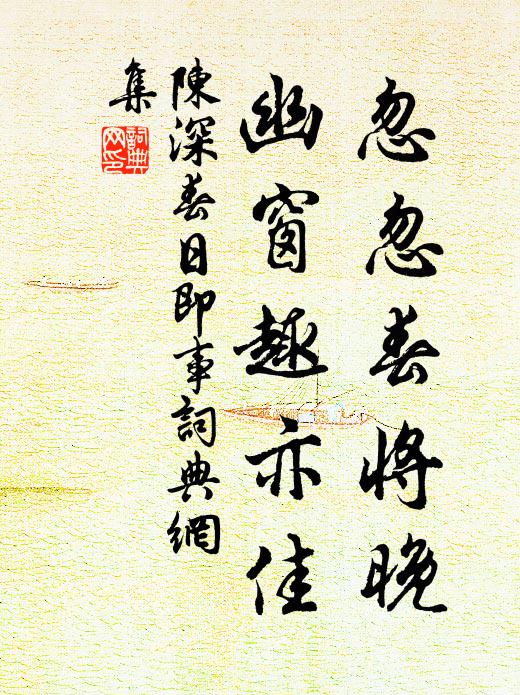 忽忽春將晚
幽窗趣亦佳
陳深春日即事詞典網
集
詞典網印